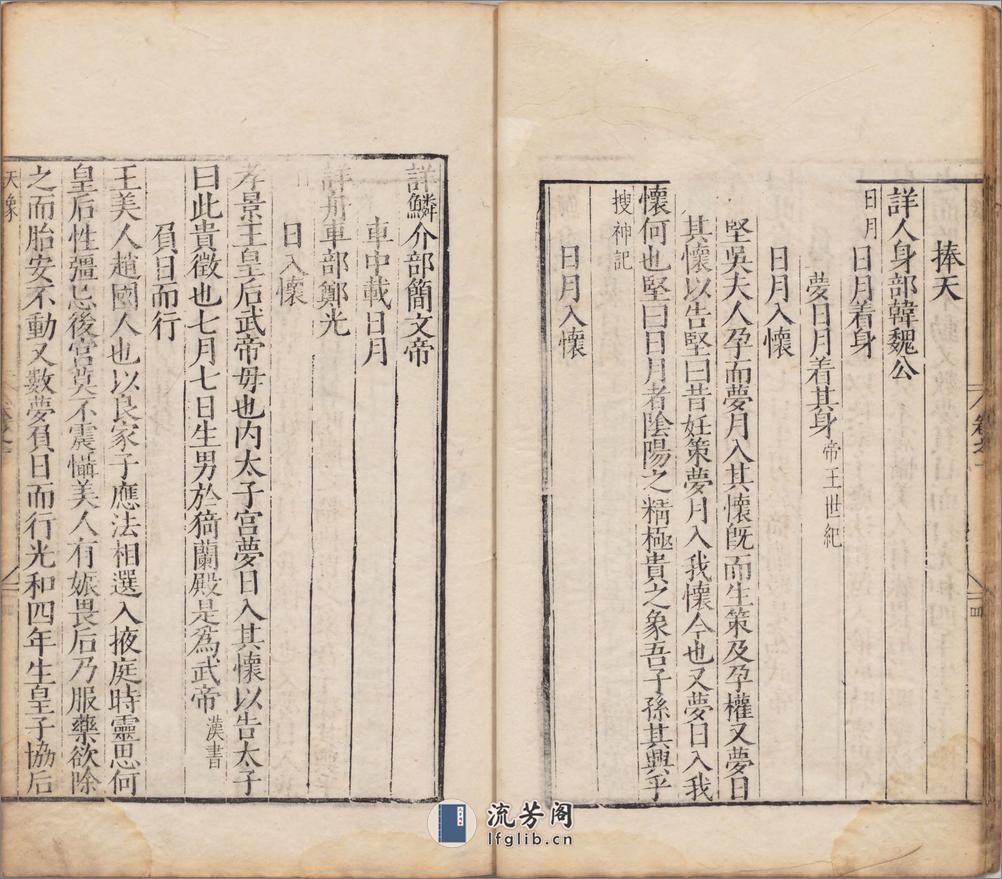 捧天
詳人身部韓魏公
日月 日月着身
夢日月着其身 帝王世紀
日月入懷
堅吳夫人孕而夢月入其懷既而生策及孕權又夢日
其懷以告堅曰昔妊策夢月入我懷今也又夢日入我
懷何也堅曰日月者陰陽之精極貴之象吾子孫其興乎
搜神記
日月入懷
詳鱗介部簡文帝
車中載日月
詳舟車部鄭光
日入懷
孝景王皇后武帝母也内太子宮夢日入其懷以告太子
曰此貴徵也七月七日生男於猗蘭殿是為武帝 漢書
負日而行
王美人趙國人也以良家子應法相選入掖庭時靈思何
皇后性彊忌後宮莫不震懾美人有娠畏后乃服藥欲除
之而胎安不動又數夢負日而行光和四年生皇子協后
天像
流芳阁
lfglib.cn